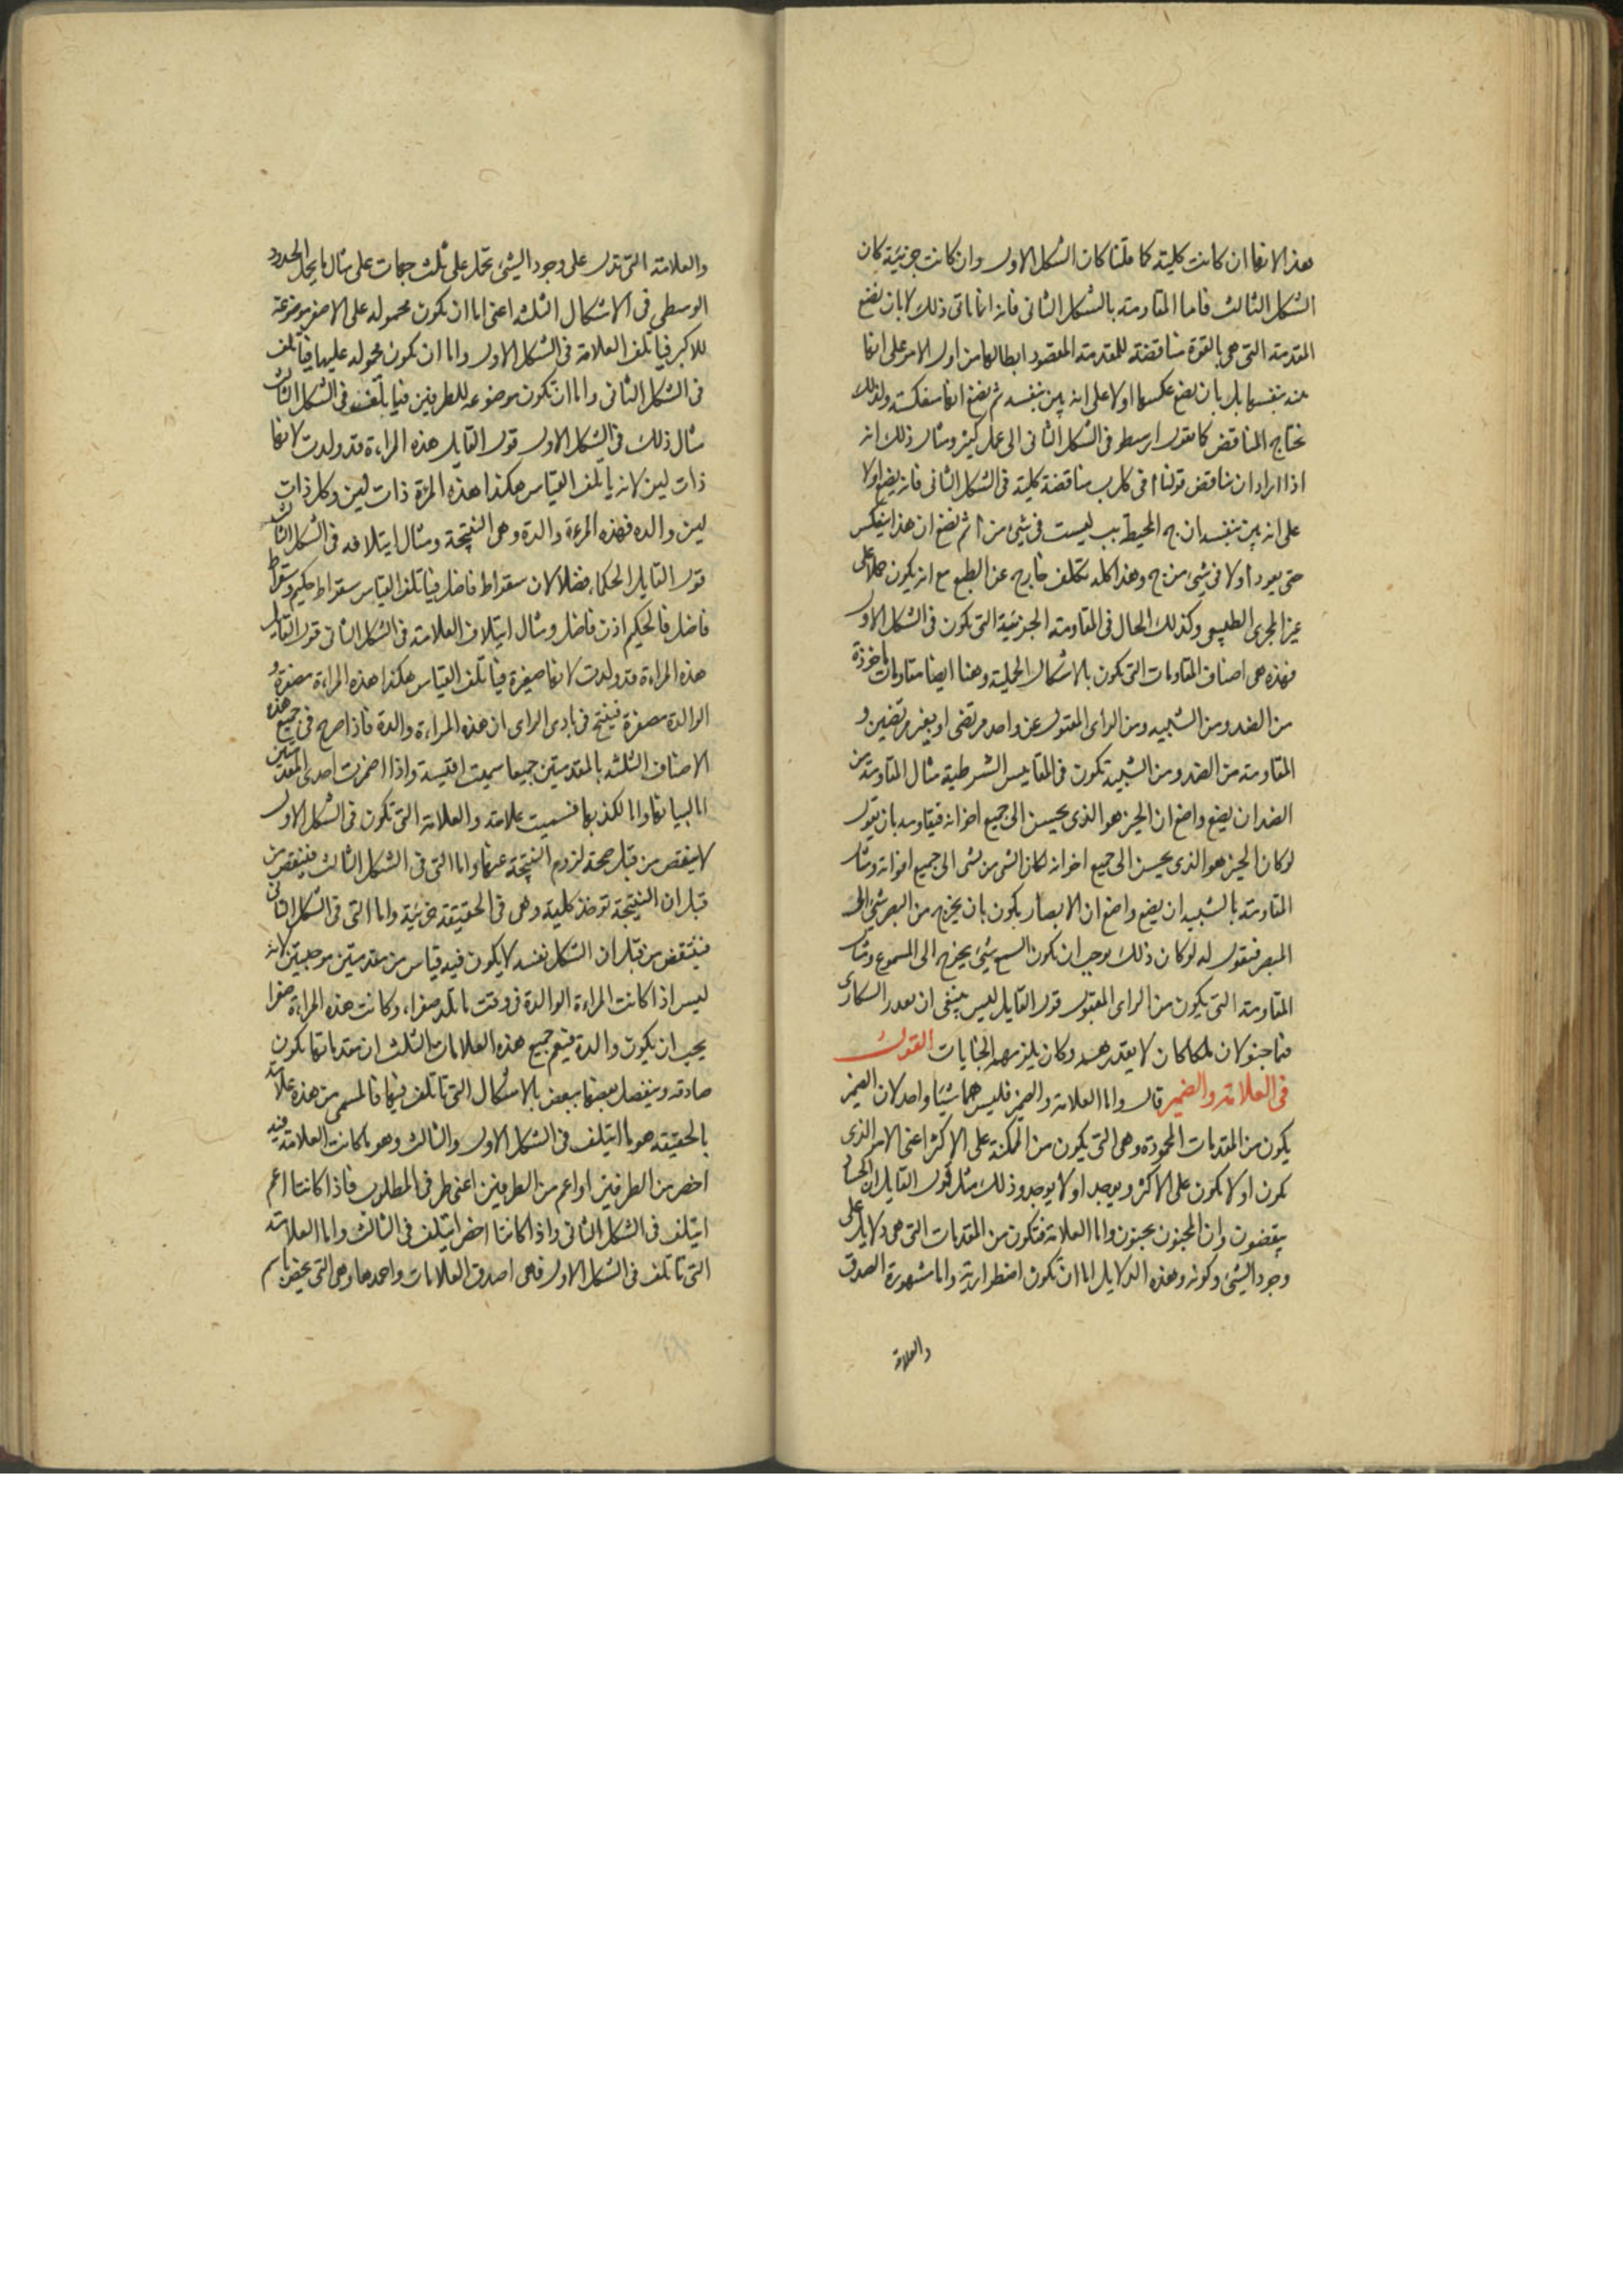 هذا لانها ان كانت كلية كما قلنا كان الشكل الاول وان كانت جزئية كان
الشكل الثالث فاما المقاومة بالشكل الثانى فانه انما ياتى ذلك لا بان نضع
المقدمة التى هى بالقوة مناقضة للمقدمة المقصود ابطالها من اول الامر على انها
بينة بنفسها بل بان نضع عكسها اولا على انه بين بنفسه ثم نضع انها منعكسة ولذلك
يحتاج المناقض كما يقول ارسطو فى الشكل الثانى الى عمل كثير ومثال ذلك انه
اذا اراد ان يناقض قولنا ا فى كل ب مناقضة كلية فى الشكل الثانى فانه يضع اولا
على انه بين بنفسه ان ج المحيط بب ليست فى شئ من ا ثم نضع ان هذا ينعكس
حتى يعود ا ولا فى شئ من ج وهذا كله تكلف خارج عن الطبع مع انه يكون حملا على
غير المجرى الطبيعى وكذلك الحال فى المقاومة الجزئية التى تكون فى الشكل الاول
فهذه هى اصناف المقاومات التى تكون بالاشكال الحملية وهنا ايضا مقاومات ماخوذة
من الضد ومن الشبيه ومن الراى المقبول عن واحد مرتضى او بغير مرتضين و
المقاومة من الضد ومن الشبيه تكون فى المقاييس الشرطية مثال المقاومة من
الضد ان يضع واضع ان الخير هو الذى يحسن الى جميع اخوانه فيقاومه بان يقول
لو كان الخير هو الذى يحسن الى جميع اخوانه لكان الشر من يسئ الى جميع اخوانه ومثال
المقاومة بالشبيه ان يضع واضع ان الابصار يكون بان يخرج من البصر شئ الى
المبصر فيقول له لو كان ذلك لوجب ان يكون السمع شئ يخرج الى المسموع ومثال
المقاومة التى يكون من الراى المقبول قول القايل ليس ينبغى ان يعذر السكارى
فيما جنوا لان ملكا كان لا يعذرهم وكان يلزمهم الجنايات القول
فى العلامة والضمير قال واما العلامة والضمير فليس هما شيئا واحد لان الضمير
يكون من المقدمات المحمودة وهى التى يكون من الممكنة على الاكثر اعنى الامر الذى
يكون او لا يكون على الاكثر ويوجد او لا يوجد وذلك مثل قول القايل ان الحساد
يبغضون وان المحبون يحبون واما العلامة فتكون من المقدمات التى هى دلايل على
وجود الشئ وكونه وهذه الدلايل اما ان تكون اضطرارية واما مشهورة الصدق
والعلامة
والعلامة التى تدل على وجود الشئ تحمل على ثلث جهات على مثال ما يحمل الحدود
الوسطى فى الاشكال الثلثة اعنى اما ان تكون محمولة على الاصغر موضوعة
للاكبر فياتلف العلامة فى الشكل الاول واما ان تكون محمولة عليهما فياتلف
فى الشكل الثانى واما ان تكون موضوعة للطرفين فياتلف فى الشكل الثالث
مثال ذلك فى الشكل الاول قول القايل هذه المراءة قد ولدت لانها
ذات لبن لانه ياتلف القياس هكذا هذه المرءة ذات لبن وكل ذات
لبن والدة فهذه المرءة والدة وهى النتيجة ومثال ايتلافه فى الشكل الثالث
قول القايل الحكماء فضلا لان سقراط فاضل فياتلف القياس سقراط حكيم وسقراط
فاضل فالحكيم اذن فاضل ومثال ايتلاف العلامة فى الشكل الثانى قول القايل
هذه المراءة قد ولدت لانها مصفرة فياتلف القياس هكذا هذه المراءة مصفرة و
الوالدة مصفرة فينتج فى بادى الراى ان هذه المراءة والدة فاذا صرح فى جميع هذه
الاصناف الثلثة بالمقدمتين جميعا سميت اقيسة واذا اضمرت احدى المقدمتين
اما لبيانها واما لكذبها فسميت علامة والعلامة التى تكون فى الشكل الاول
لا ينتقض من قبل صحة لزوم النتيجة عنها واما التى فى الشكل الثالث فينتقض من
قبل ان النتيجة توخذ كلية وهى فى الحقيقة جزئية واما التى فى الشكل الثانى
فينتقض من قبل ان الشكل نفسه لا يكون فيه قياس من مقدمتين موجبتين لانه
ليس اذا كانت المراءة الوالدة فى وقت ما تلد صفراء وكانت هذه المراءة صفرا
يجب ان يكون والدة فيعم جميع هذه العلامات الثلث ان مقدماتها تكون
صادقة وينفصل بعضها ببعض بالاشكال التى تاتلف فيها فالمسمى من هذه علامة
بالحقيقة هو ما ايتلف فى الشكل الاول والثالث وهو ما كانت العلامة فيه
اخص من الطرفين او اعم من الطرفين اعنى طرفى المطلوب فاذا كانتا اعم
ايتلف فى الشكل الثانى واذا كانتا اخص ايتلف فى الثالث واما العلامة
التى تاتلف فى الشكل الاول فهى اصدق العلامات واحمدها وهى التى يخص باسم